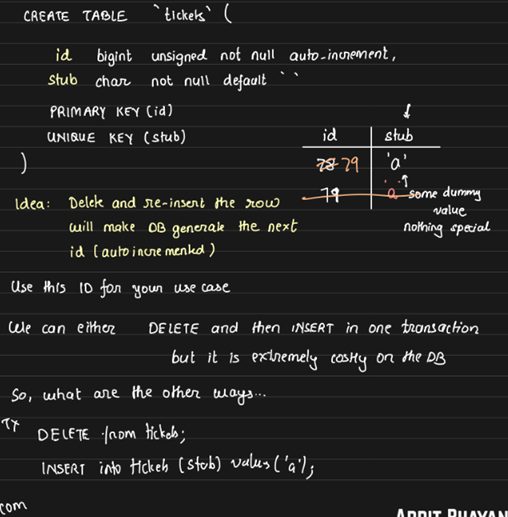 CREATE TABLE `tickets` (
id bigint unsigned not null auto-increment,
stub char not null default ``
PRIMARY KEY (id)
UNIQUE KEY (stub)
)
id stub
78 79 'a'
79 a some dummy
value
nothing special
Idea: Delete and re-insert the row
will make DB generate the next
id (auto incremented)
Use this ID for your use case
We can either DELETE and then INSERT in one transaction
but it is extremely costly on the DB
So, what are the other ways...
Tx DELETE from tickets;
INSERT into tickets (stub) values ('a');
com